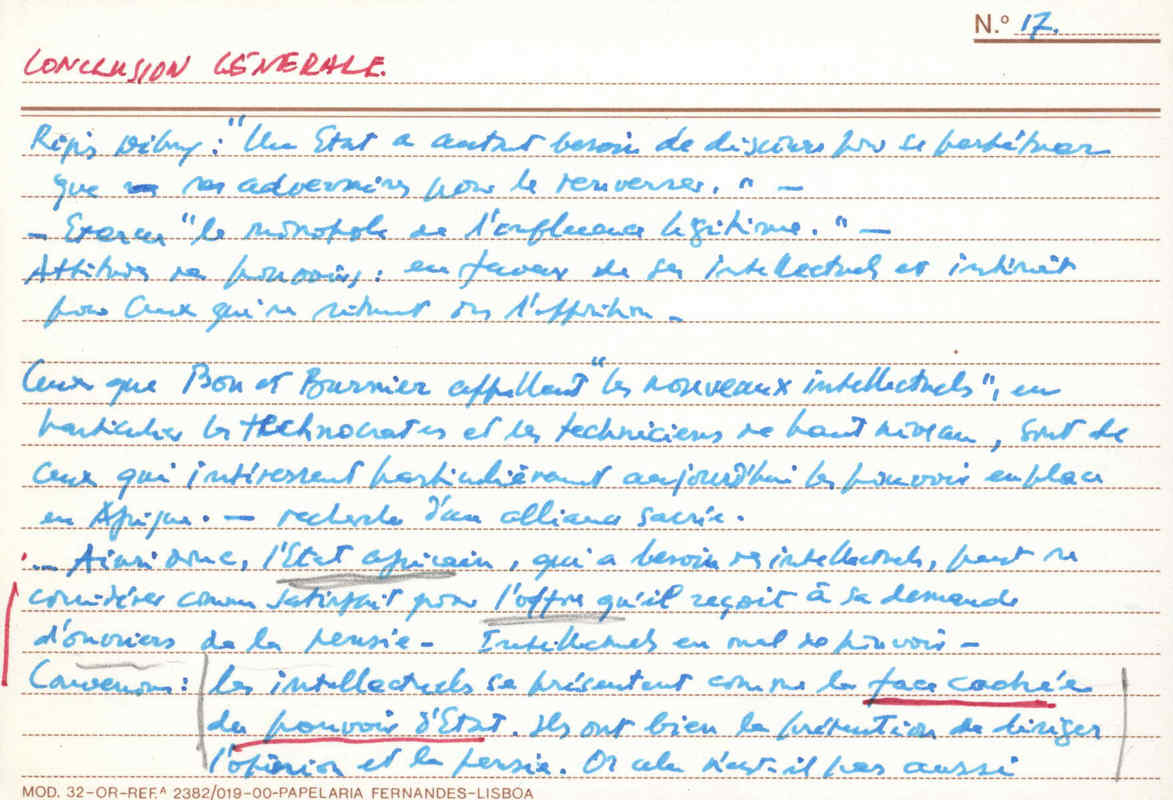 N.º 17.
CONCLUSION GÉNÉRALE.
Régis Debray : "Un Etat a autant besoin de discours pour se perpétuer
que ses adversaires pour le renverser." —
— Exercer "le monopole de l'influence légitime." —
Attitudes des pouvoirs : en faveur de ses intellectuels et
pour ceux qui se situent ds l'opposition —
Ceux que Bon et Burnier appellent "les nouveaux intellectuels", en
particulier les technocrates et les techniciens de haut niveau, sont de
ceux qui intéressent particulièrement aujourd'hui les pouvoirs en place
en Afrique. — recherche d'un alliance sacrée.
... Ainsi donc, l'Etat africain, qui a besoin des intellectuels, peut se
considérer comme satisfait pour l'offre qu'il reçoit à sa demande
d'ouvriers de la pensée — Intellectuels en mal de pouvoir —
Convenons : les intellectuels se présentent comme la face cachée
du pouvoir d'Etat. Ils ont bien la prétention de diriger
l'opinion et la pensée. Or cela n'est-il pas aussi
MOD. 32-OR-REF.ª 2382/019-00-PAPELARIA FERNANDES-LISBOA